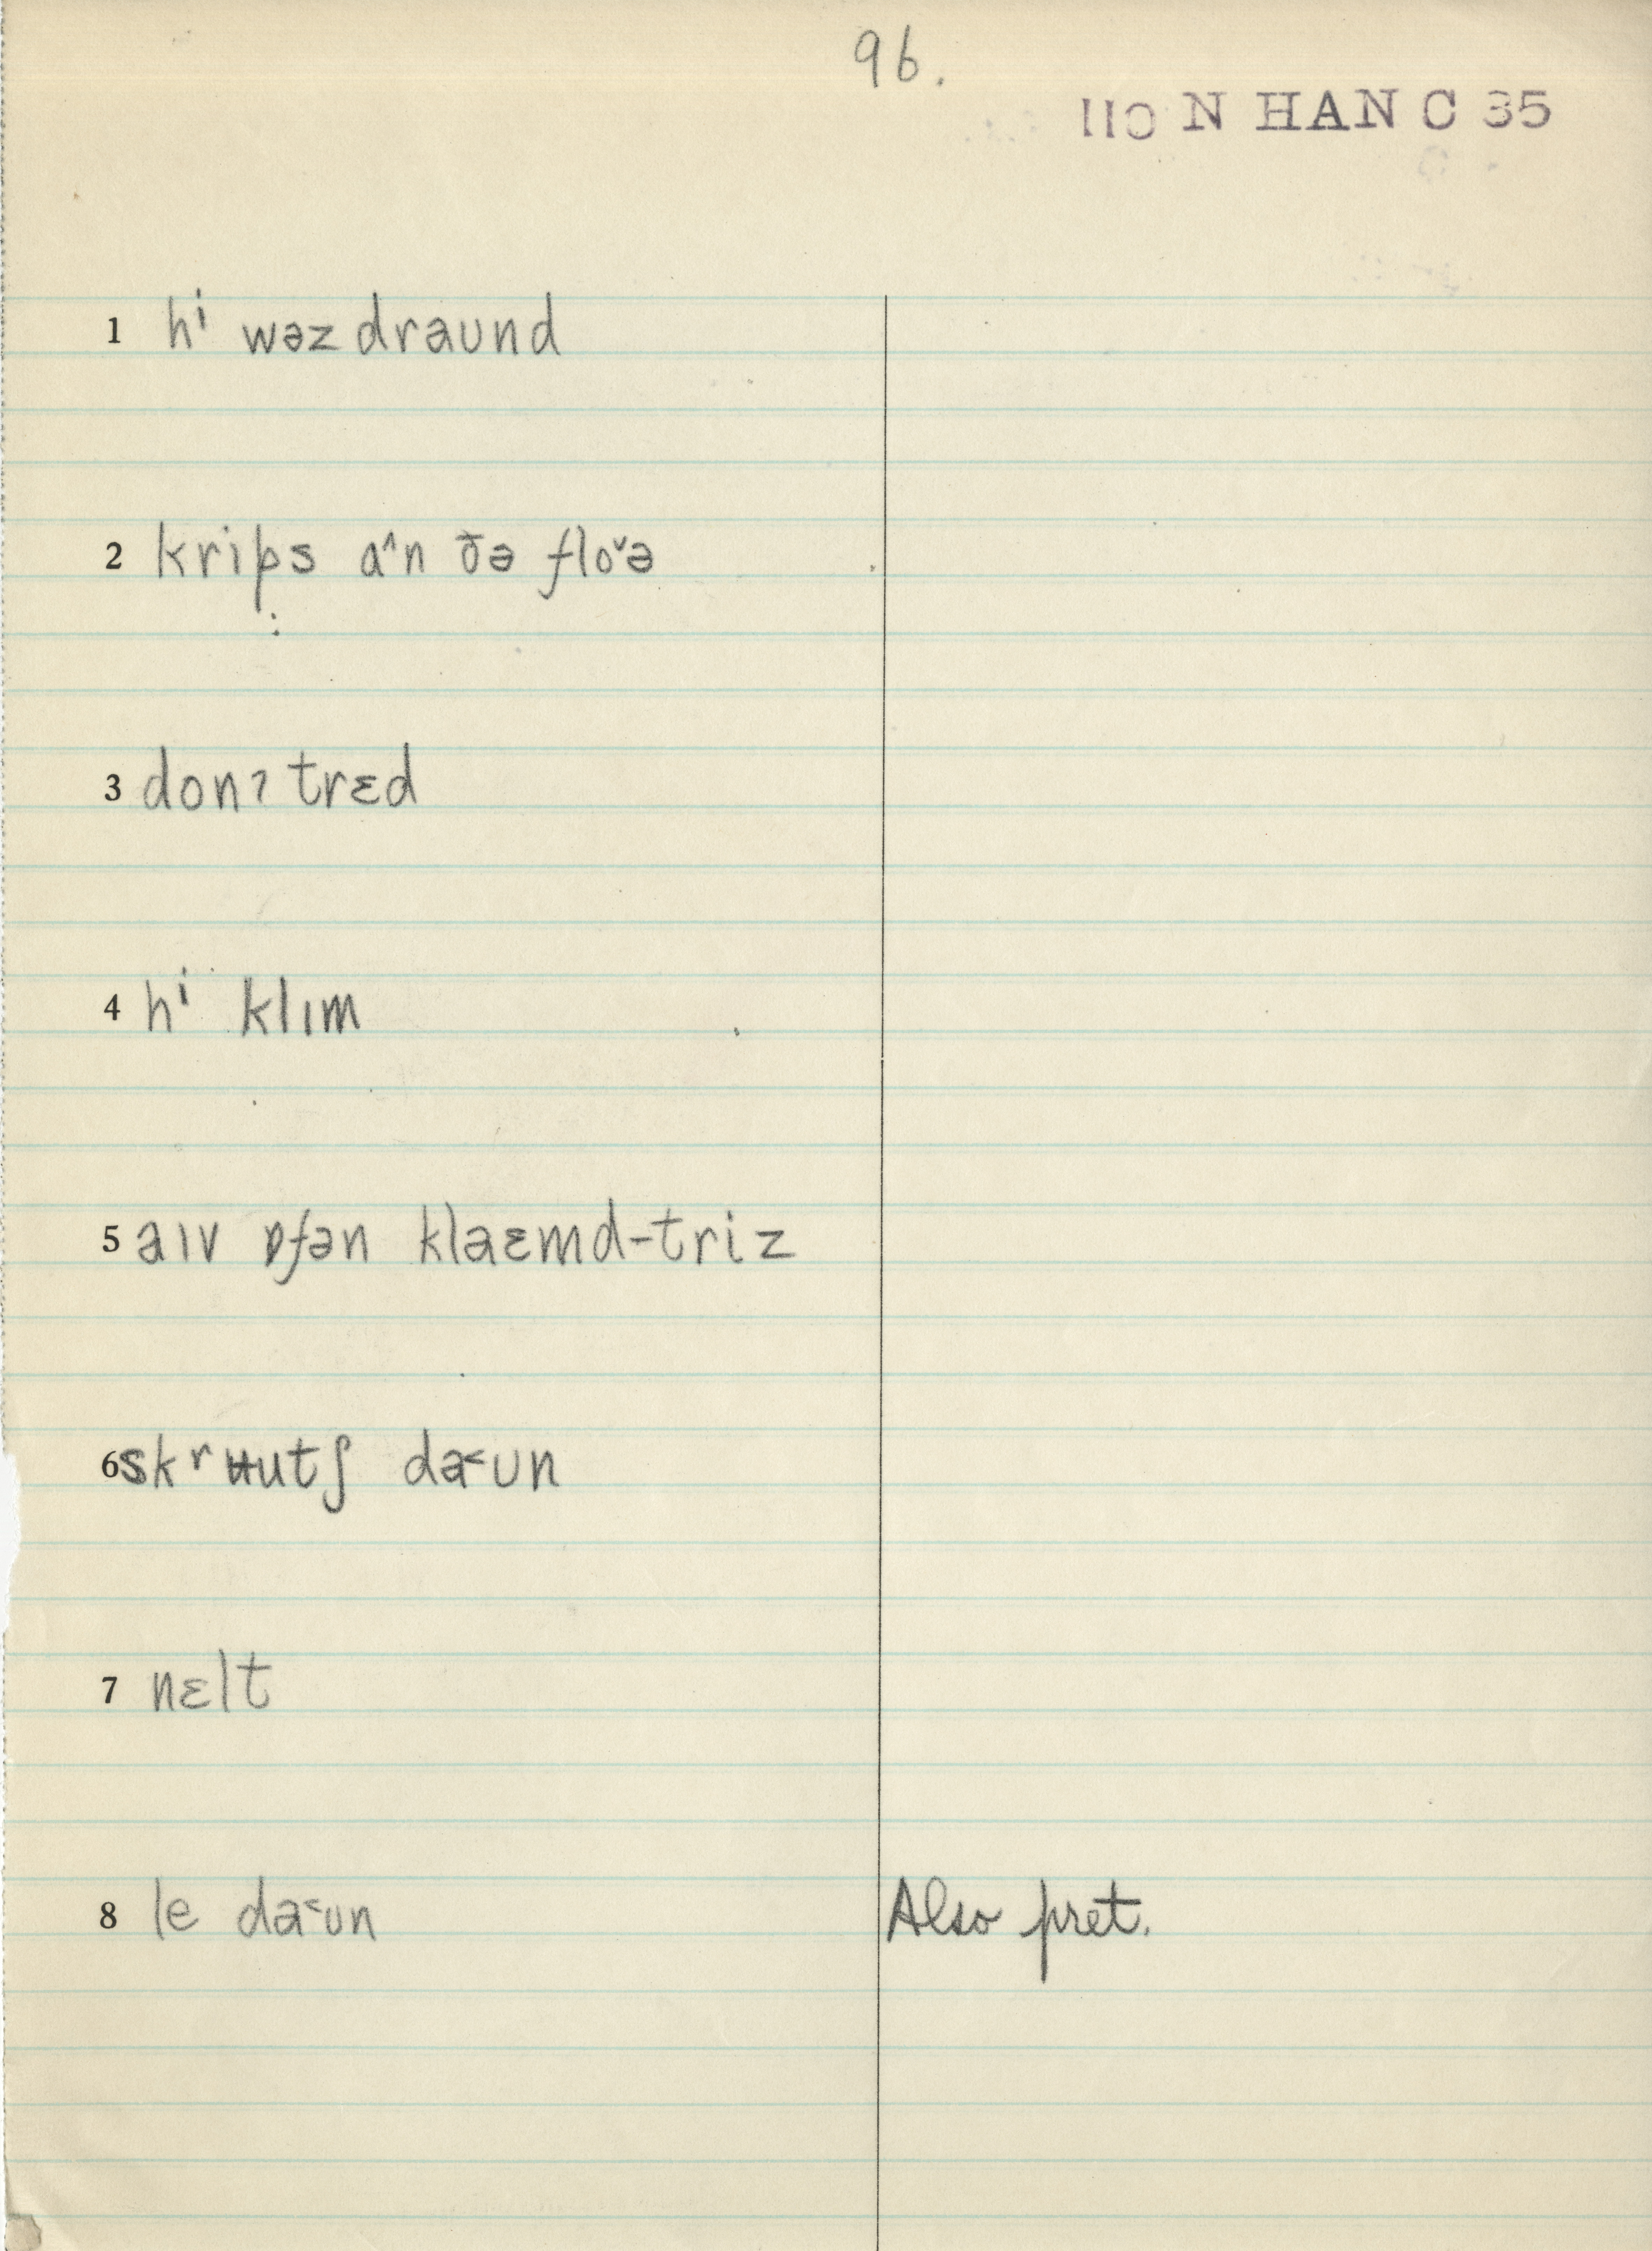 96.
110 N HAN C 35
1 hⁱ wəz draund
2 krips a^n ðə floˇə
3 donʔ trɛd
4 hⁱ klɪm
5 aɪv ɒfən klaɛmd-triz
6 skʳʉutʃ da˂un
7 nɛlt
8 le da˂un Also pret.